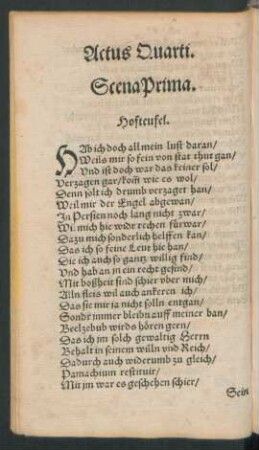 Actus Quarti.
Scena Prima.
Hofteufel.
HAb ich doch all mein lust daran/
Weils mir so fein von stat thut gan/
Vnd ist doch war das keiner sol/
Verzagen gar/ kom̃ wie es wol/
Denn solt ich drumb verzaget han/
Weil mir der Engel abgewan/
In Persien noch lang nicht zwar/
Wil mich hie wide rechen fürwar/
Dazu mich sonderlich helffen kan/
Das ich so feine Leut hie han/
Die ich auch so gantz willig find/
Vnd hab an in ein recht gesind/
Mit boßheit sind schier vber mich/
Alln fleis wil auch ankeren ich/
Das sie mir ja nicht solln entgan/
Sondr immer bleibn auff meiner ban/
Beelzebub wirds hören gern/
Das ich im solch gewaltig Herrn
Behalt in seinem willn vnd Reich/
Dadurch auch widerumb zu gleich/
Pamachium restituir/
Mit jm war es geschehen schier/
Sein